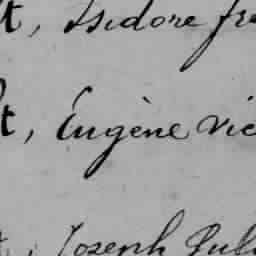 t, Isidore fre
t, Eugène Vic
, Joseph Jul